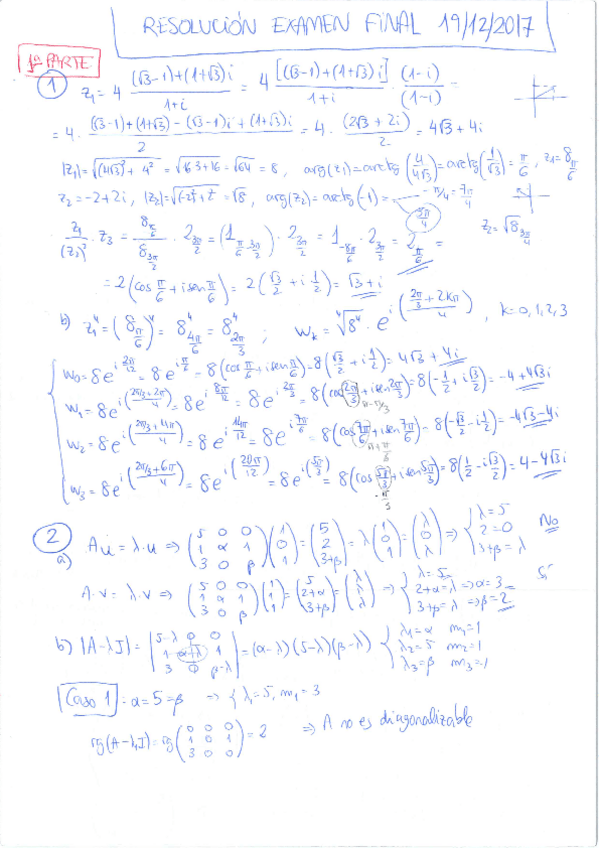 RESOLUCIÓN EXAMEN FINAL 19/12/2017
1ª PARTE
1 z₁ = 4 ((√3-1)+(1+√3)i)/(1+i) = 4 [(√3-1)+(1+√3)i]/(1+i) · (1-i)/(1-i) =
= 4 · ((√3-1)+(1+√3) - (√3-1)i + (1+√3)i)/2 = 4 · (2√3 + 2i)/2 = 4√3 + 4i
|z₁| = √((4√3)² + 4²) = √(16·3+16) = √64 = 8, arg(z₁) = arctg(4/(4√3)) = arctg(1/√3) = π/6, z₁ = 8_(π/6)
z₂ = -2+2i, |z₂| = √(-2)²+2² = √8, arg(z₂) = arctg(-1) = -π/4 = 7π/4
3π/4 z₂ = √8_(3π/4)
z₁/(z₂)² · z₃ = 8_(π/6)/8_(3π/2) · 2_(3π/2) = (1_(π/6 - 3π/2)) · 2_(3π/2) = 1_(-8π/6) · 2_(3π/2) = 2_(π/6)
= 2(cos π/6 + i sen π/6) = 2(√3/2 + i · 1/2) = √3 + i
b) z₁⁴ = (8_(π/6))⁴ = 8⁴_(4π/6) = 8⁴_(2π/3) ; w_k = ⁴√8⁴ · e^(i((2π/3 + 2kπ)/4)), k=0,1,2,3
w₀ = 8e^(i 2π/12) = 8e^(i π/6) = 8(cos π/6 + i sen π/6) = 8(√3/2 + i 1/2) = 4√3 + 4i
w₁ = 8e^(i((2π/3+2π)/4)) = 8e^(i 8π/12) = 8e^(i 2π/3) = 8(cos 2π/3 + i sen 2π/3) = 8(-1/2 + i √3/2) = -4 + 4√3i
π-π/3
w₂ = 8e^(i((2π/3+4π)/4)) = 8e^(i 14π/12) = 8e^(i 7π/6) = 8(cos 7π/6 + i sen 7π/6) = 8(-√3/2 - i 1/2) = -4√3 - 4i
π+π/6
w₃ = 8e^(i((2π/3+6π)/4)) = 8e^(i(20π/12)) = 8e^(i(5π/3)) = 8(cos 5π/3 + i sen 5π/3) = 8(1/2 - i √3/2) = 4 - 4√3i
-π/3
2 a) Au = λ·u ⇒ (5 0 0; 1 α 1; 3 0 β)(1; 0; 1) = (5; 2; 3+β) = λ(1; 0; 1) = (λ; 0; λ) ⇒ { λ=5; 2=0; 3+β=λ No
A·v = λ·v ⇒ (5 0 0; 1 α 1; 3 0 β)(1; 1; 1) = (5; 2+α; 3+β) = (λ; λ; λ) ⇒ { λ=5; 2+α=λ ⇒ α=3; 3+β=λ ⇒ β=2 Sí
b) |A-λI| = |5-λ 0 0; 1 α-λ 1; 3 0 β-λ| = (α-λ)(5-λ)(β-λ) { λ₁=α m₁=1; λ₂=5 m₂=1; λ₃=β m₃=1
Caso 1: α=5=β ⇒ { λ₁=5, m₁=3
rg(A-λ₁I) = rg(0 0 0; 1 0 1; 3 0 0) = 2 ⇒ A no es diagonalizable